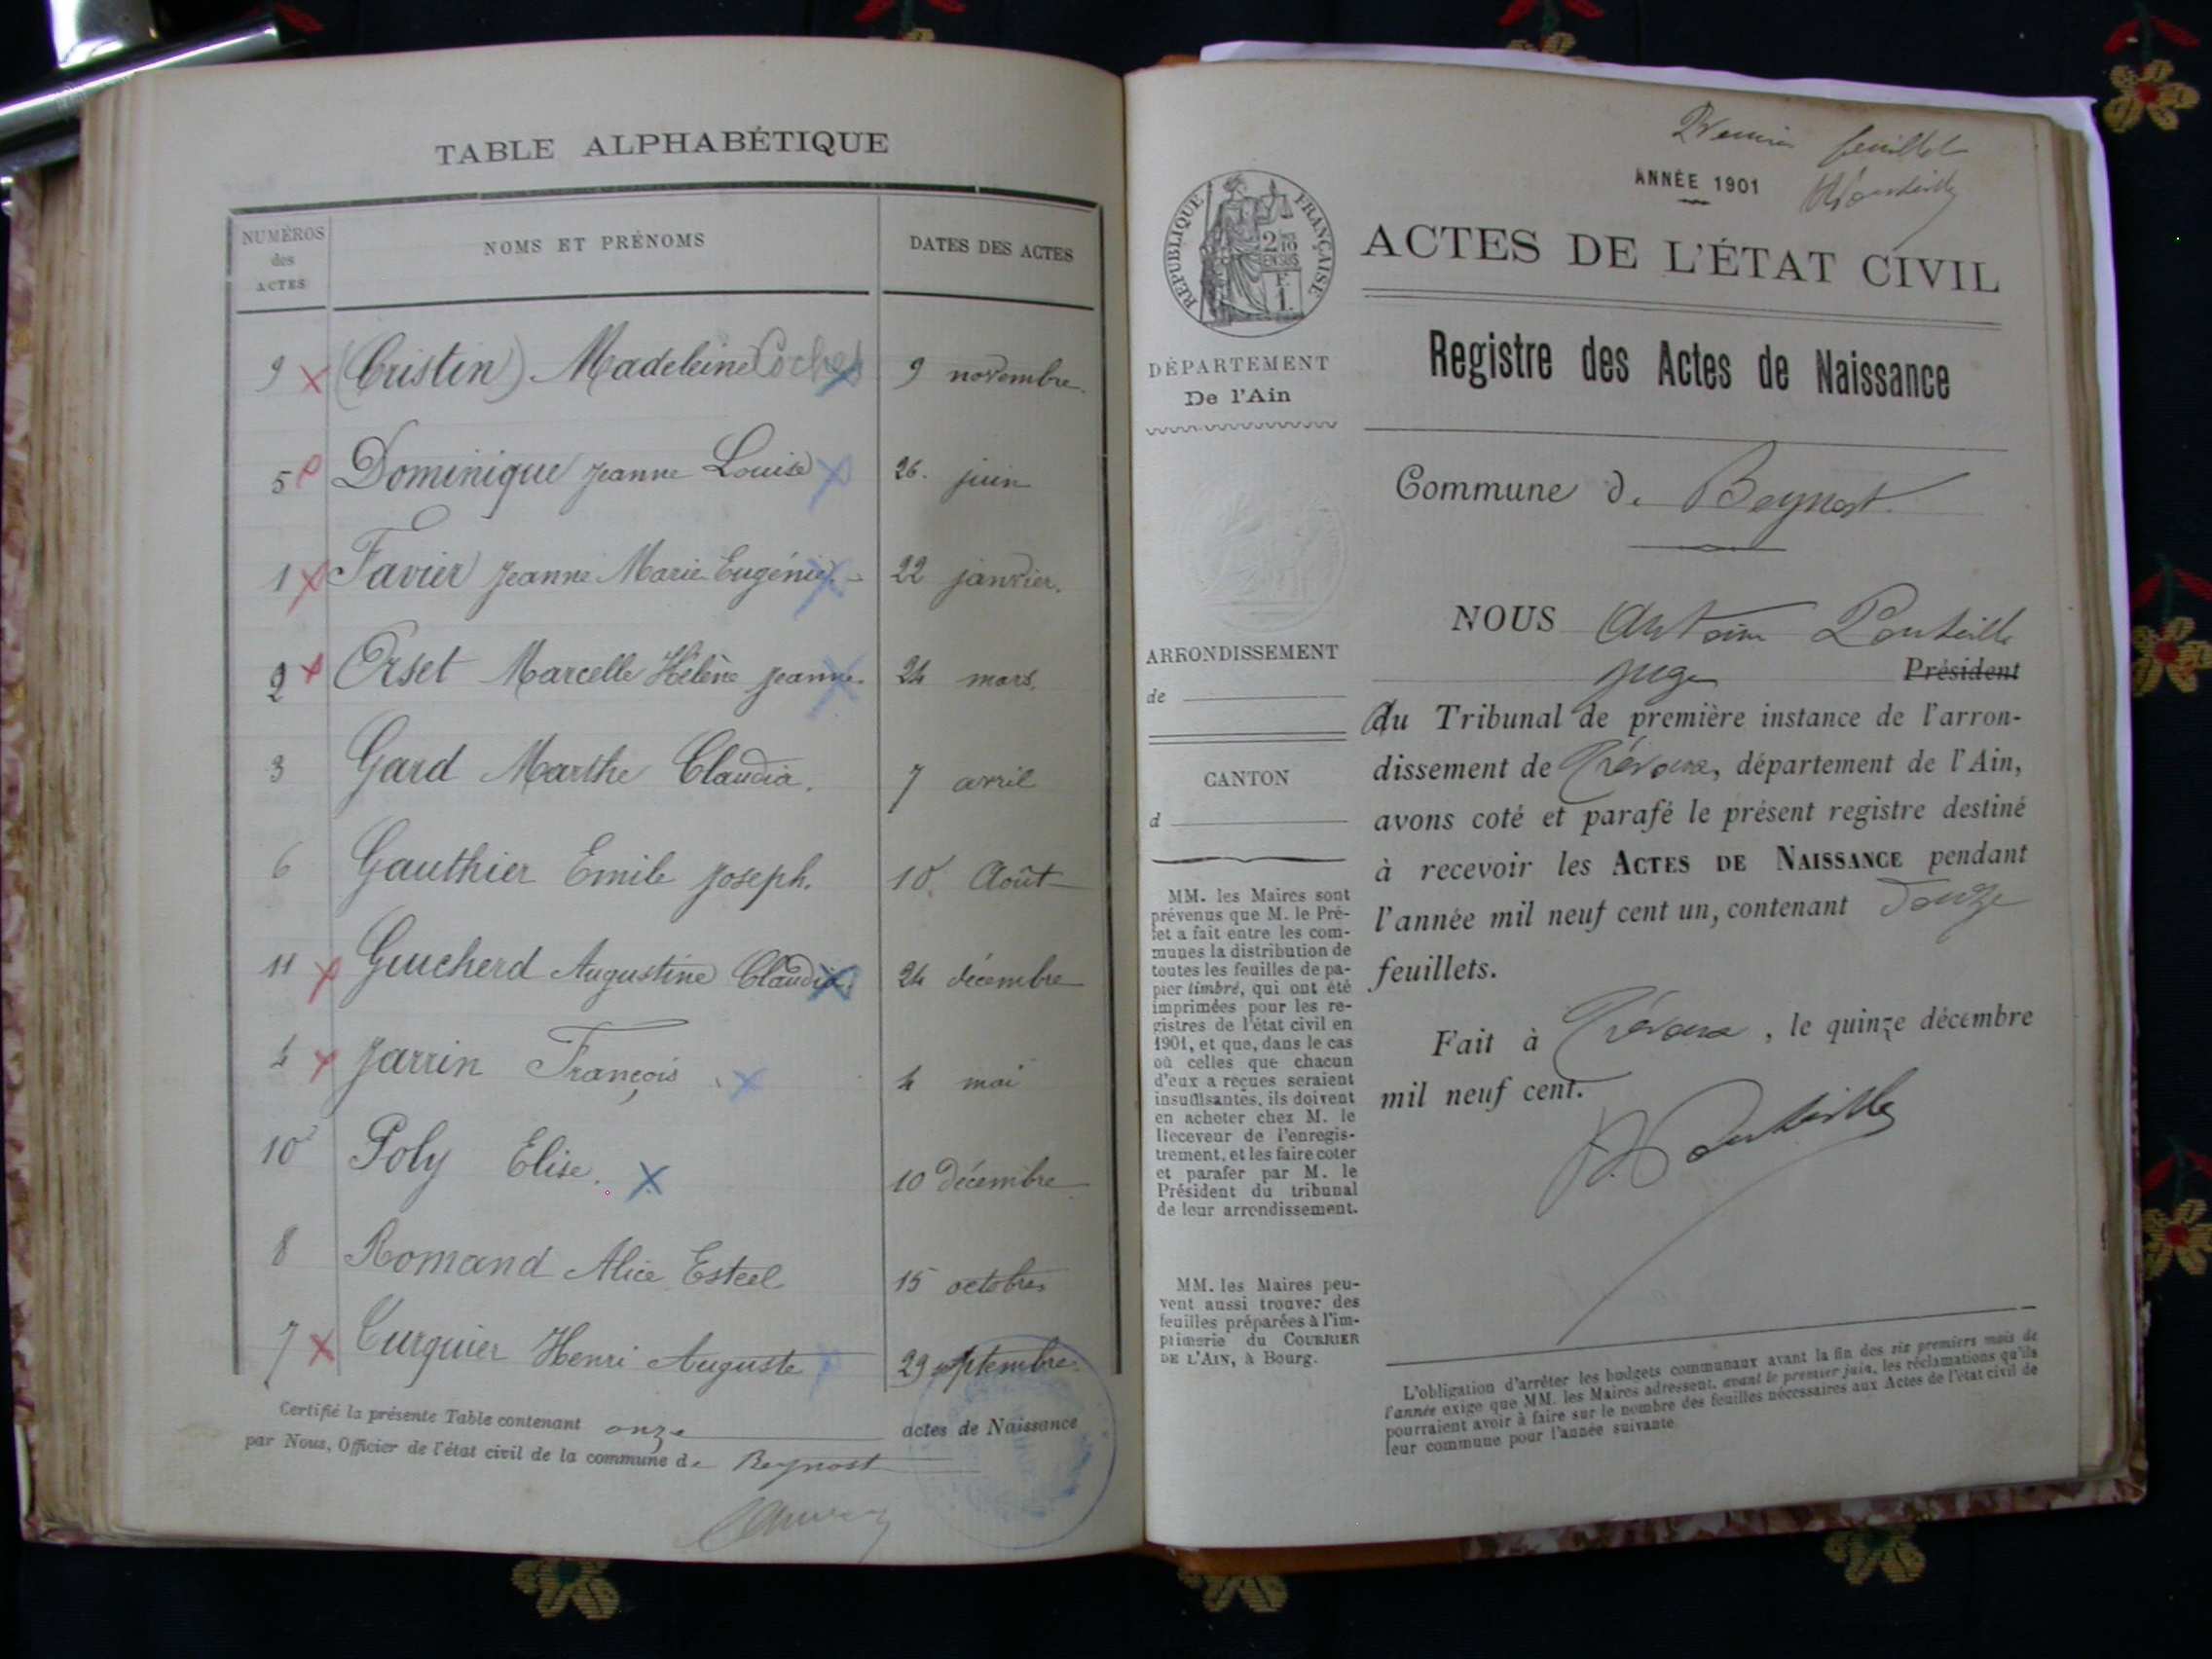 TABLE ALPHABÉTIQUE
NUMÉROS
des
ACTES
NOMS ET PRÉNOMS
DATES DES ACTES
9 (Cristin) Madeleine Coches 9 novembre
5 Dominique Jeanne Louise 26. juin
1 Favier Jeanne Marie Eugénie 22 janvier.
2 Orset Marcelle Hélène Jeanne. 24 mars.
3 Gard Marthe Claudia. 7 avril
6 Gauthier Emile Joseph. 10. Août
11 Guicherd Augustine Claudia. 24 décembre
4 Jarrin François 4 mai
10 Poly Elise. 10 décembre
8 Romand Alice Esteel 15 octobre
7 Curquier Henri Auguste 29 septembre
Certifié la présente Table contenant onze actes de Naissance
par Nous, Officier de l'état civil de la commune de Beynost
Premier feuillet
ANNÉE 1901
RÉPUBLIQUE FRANÇAISE
ACTES DE L'ÉTAT CIVIL
DÉPARTEMENT
De l'Ain
Registre des Actes de Naissance
Commune de Beynost
ARRONDISSEMENT
de
CANTON
d
MM. les Maires sont
prévenus que M. le Pré-
fet a fait entre les com-
munes la distribution de
toutes les feuilles de pa-
pier timbré, qui ont été
imprimées pour les re-
gistres de l'état civil en
1901, et que, dans le cas
où celles que chacun
d'eux a reçues seraient
insuffisantes, ils doivent
en acheter chez M. le
Receveur de l'enregis-
trement, et les faire coter
et parafer par M. le
Président du tribunal
de leur arrondissement.
MM. les Maires peu-
vent aussi trouver des
feuilles préparées à l'im-
primerie du COURRIER
DE L'AIN, à Bourg.
NOUS Antoine
juge Président
du Tribunal de première instance de l'arron-
dissement de Trévoux, département de l'Ain,
avons coté et parafé le présent registre destiné
à recevoir les ACTES DE NAISSANCE pendant
l'année mil neuf cent un, contenant Douze
feuillets.
Fait à Trévoux, le quinze décembre
mil neuf cent.
L'obligation d'arrêter les budgets communaux avant la fin des six premiers mois de
l'année exige que MM. les Maires adressent, avant le premier juin, les réclamations qu'ils
pourraient avoir à faire sur le nombre des feuilles nécessaires aux Actes de l'état civil de
leur commune pour l'année suivante.